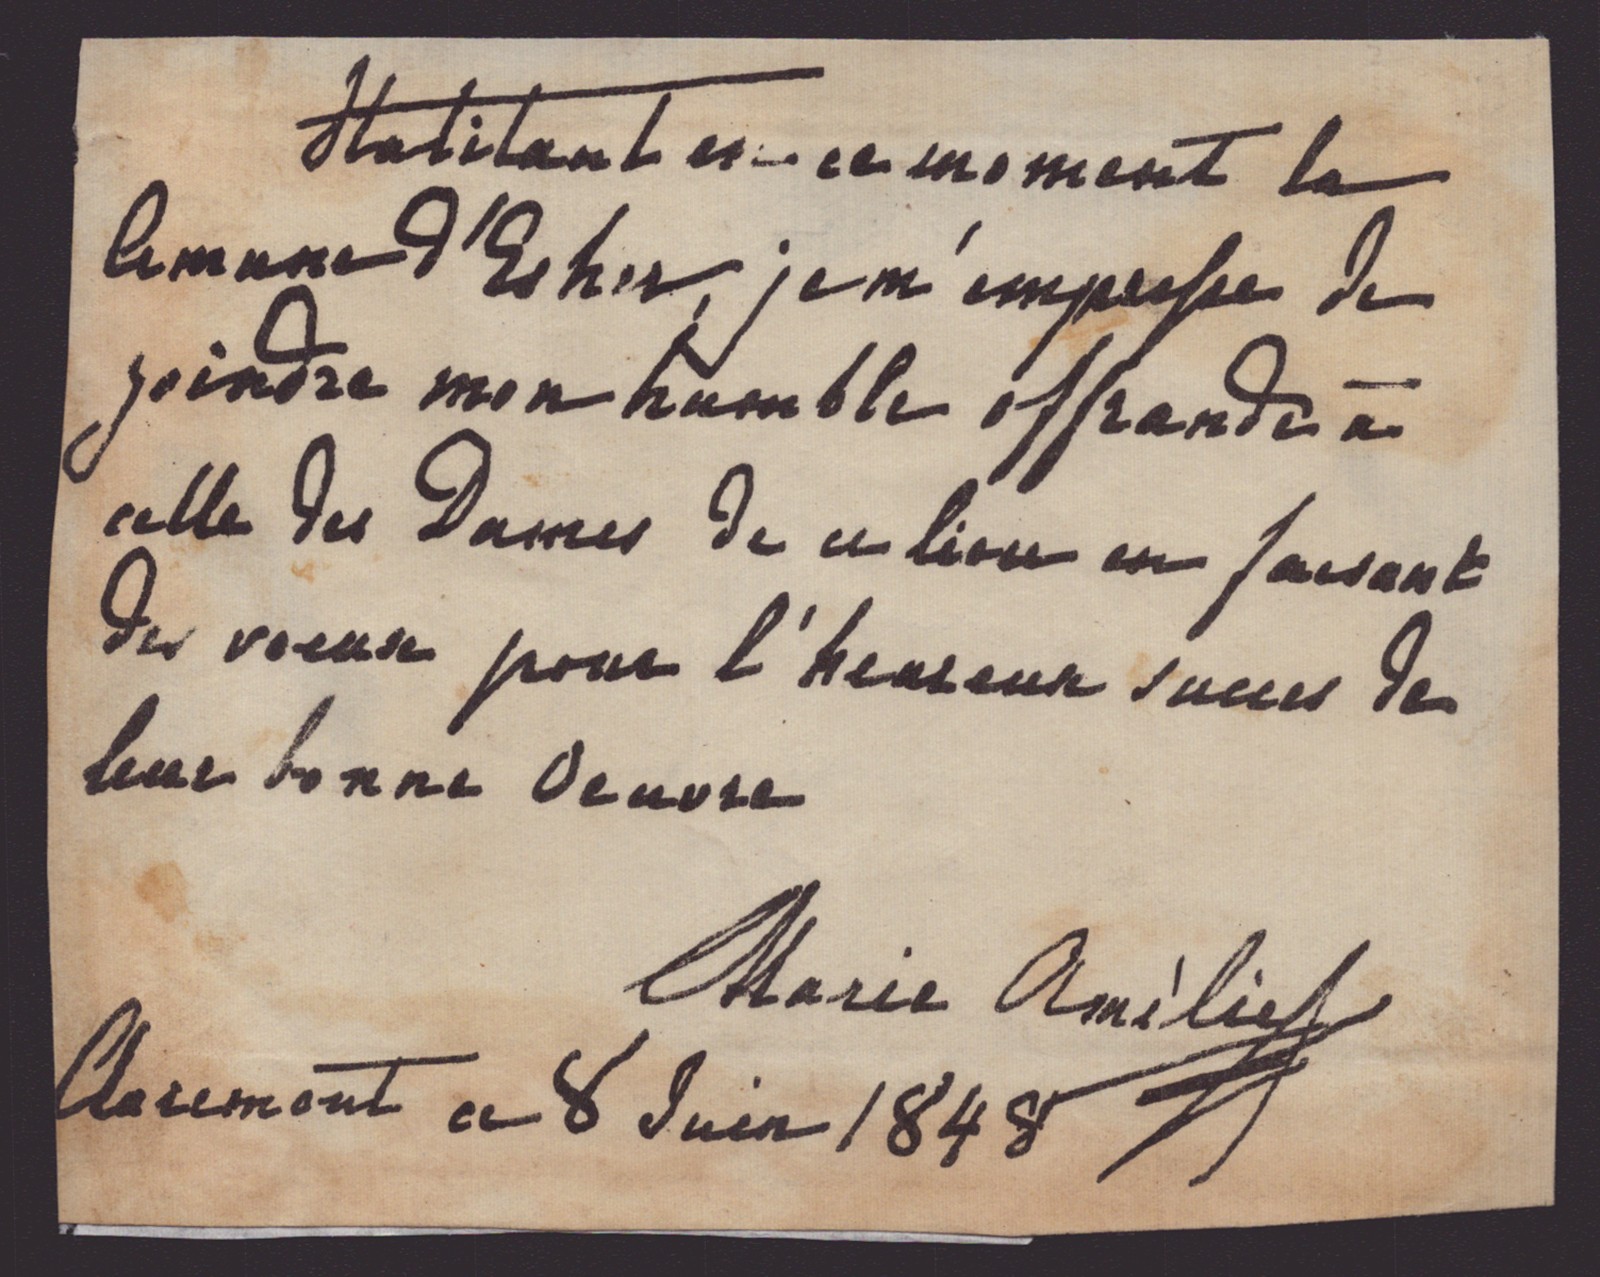 Habitant en ce moment la
Comune d'Esher, je m'empresse de
joindre mon humble offrande à
celle des Dames de ce lieu en faisant
des voeux pour l'heureux succes de
leur bonne Oeuvre
Marie Amélie
Claremont ce 8 Juin 1848